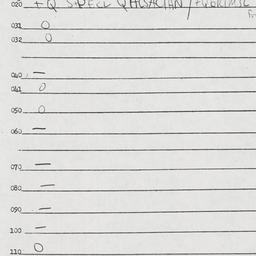 020 + Q
031 0
032 0
040 —
041 0
050 0
060 —
070 —
080 —
090 —
100 —
110 0